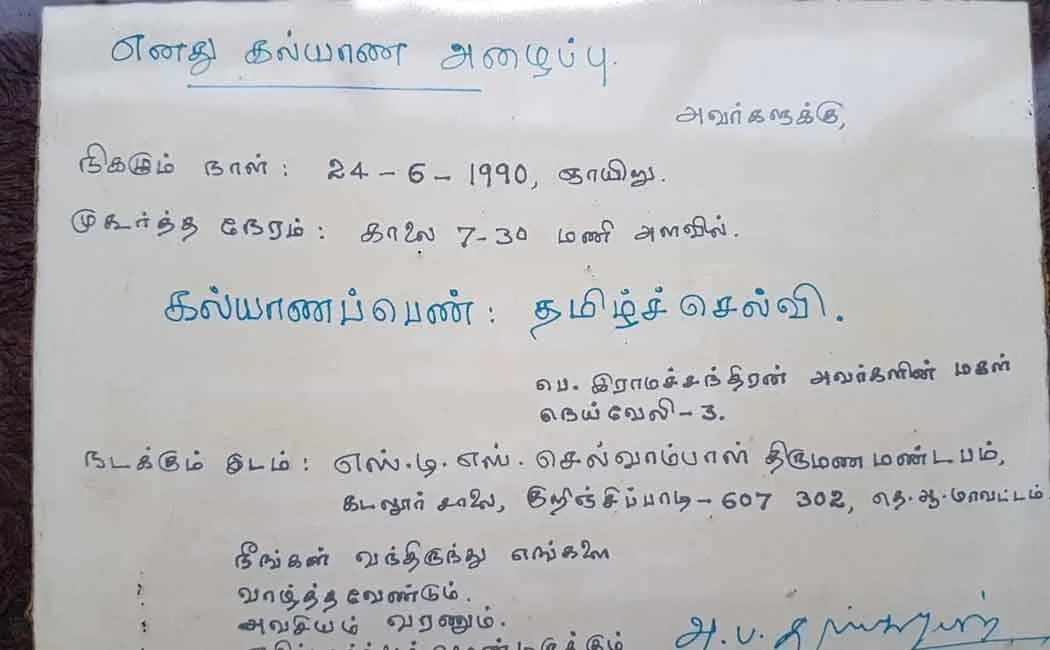 எனது கல்யாண அழைப்பு.
அவர்களுக்கு,
நிகழும் நாள் : 24 - 6 - 1990, ஞாயிறு.
முகூர்த்த நேரம் : காலை 7-30 மணி அளவில்.
கல்யாணப்பெண் : தமிழ்ச் செல்வி.
பெ. இராமச்சந்திரன் அவர்களின் மகள்
நெய்வேலி - 3.
நடக்கும் இடம் : எஸ்.டி.எஸ். செல்வாம்பாள் திருமண மண்டபம்,
கடலூர் சாலை, குறிஞ்சிப்பாடி - 607 302, தெ.ஆ.மாவட்டம்
நீங்கள் வந்திருந்து எங்களை
வாழ்த்த வேண்டும்.
அவசியம் வரணும்.